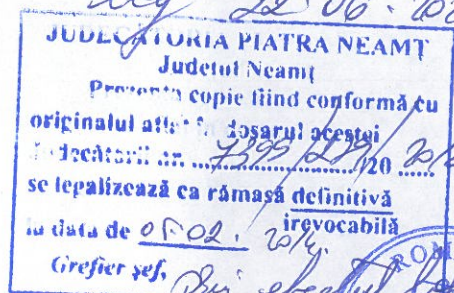 22 06. 20
JUDECĂTORIA PIATRA NEAMŢ
Judeţul Neamţ
Prezenta copie fiind conformă cu
originalul aflat în dosarul acestei
Judecătorii nr. ..................../20 ......
se legalizează ca rămasă definitivă
irevocabilă
la data de 05.02.
Grefier şef,
ROM